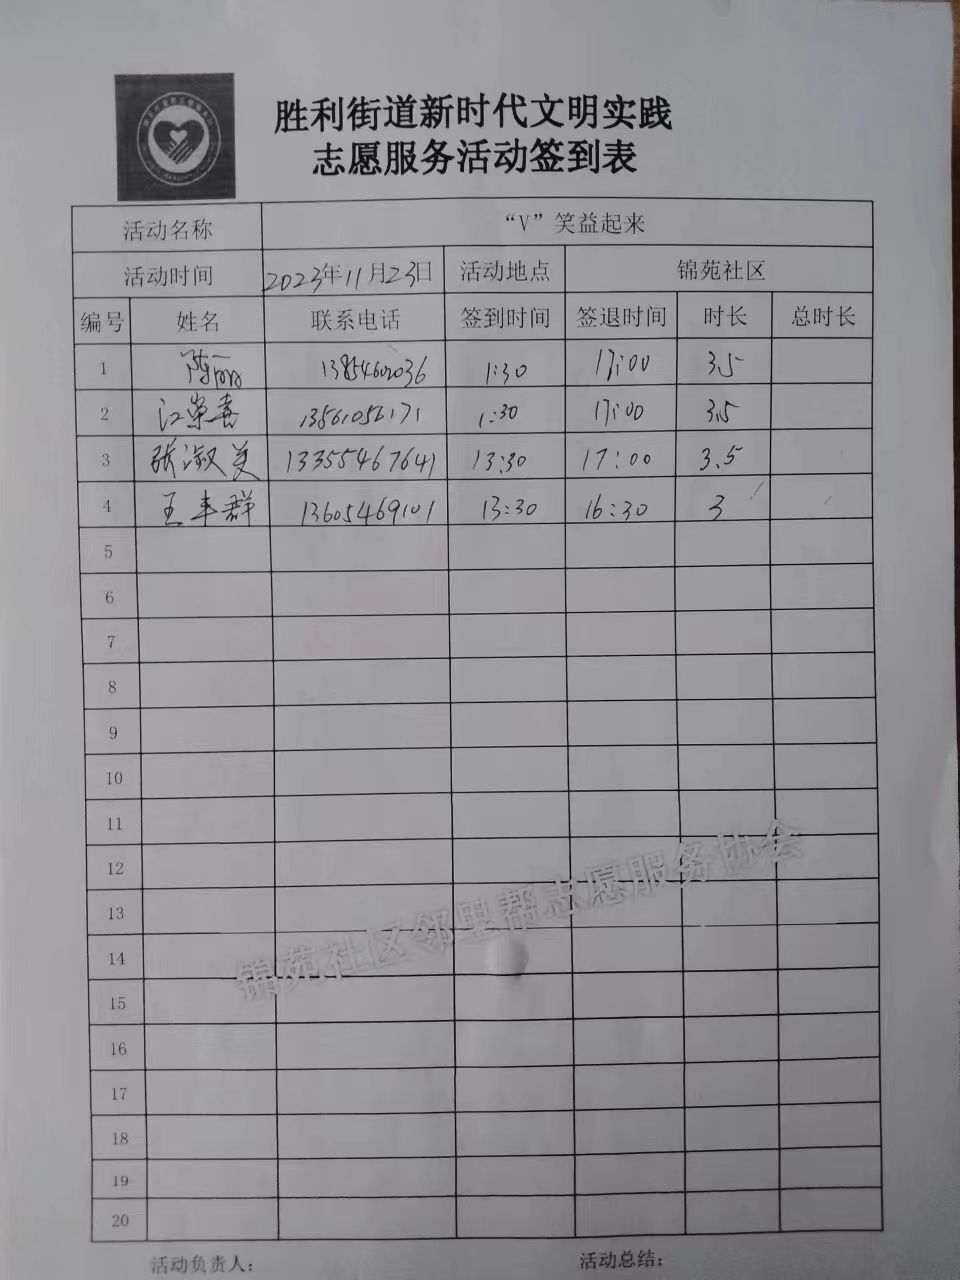 胜利街道新时代文明实践
志愿服务活动签到表
活动名称 “V”笑益起来
活动时间 2023年11月23日 活动地点 锦苑社区
编号 姓名 联系电话 签到时间 签退时间 时长 总时长
1 陈丽 1:30 17:00 3.5
2 江荣喜 13561056171 1:30 17:00 3.5
3 张淑美 13355467641 13:30 17:00 3.5
4 王丰群 13605469101 13:30 16:30 3
5
6
7
8
9
10
11
12
13
14
15
16
17
18
19
20
锦苑社区邻里帮志愿服务协会
活动负责人: 活动总结: